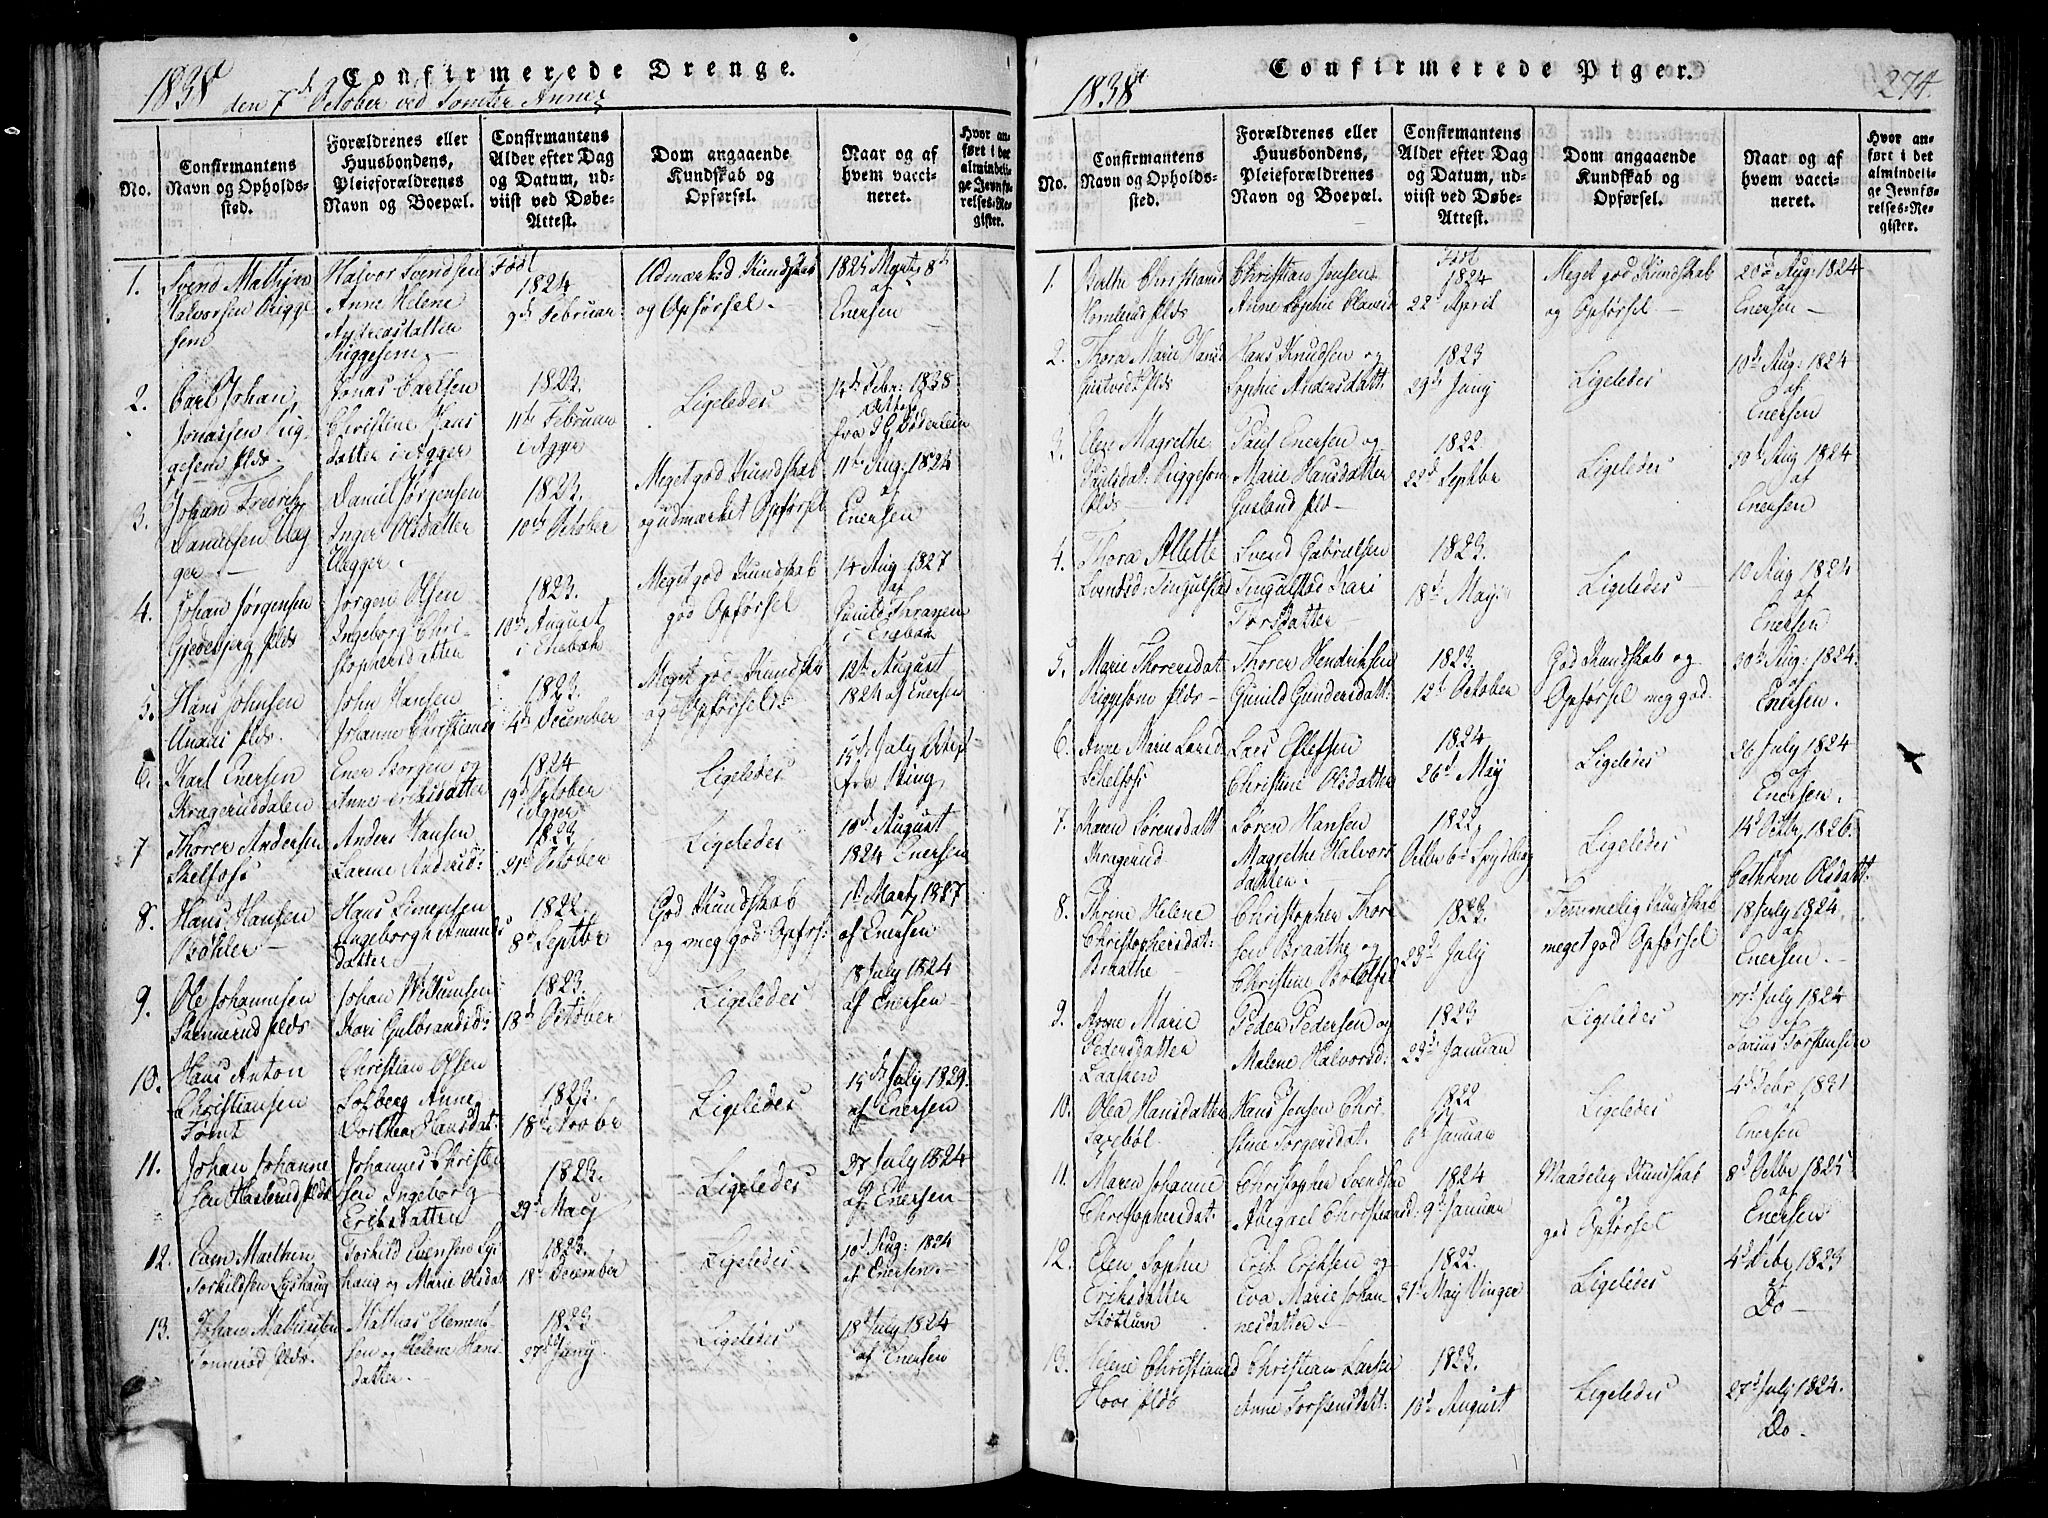 1838
Confirmerede Drenge.
den 7de October ved Somter Annex
No.
Confirmantens Navn og Opholdssted.
Forældrenes eller Huusbondens, Pleieforældrenes Navn og Boepæl.
Confirmantens Alder efter Dag og Datum, udviist ved Døbe-Attest.
Dom angaaende Kundskab og Opførsel.
Naar og af hvem vaccineret.
Hvor anført i det almindelige Jevnførelses-Register.
1.
Svend Mathjen
Halvorsen Rigge
sem
Halvor Svendsen
Anne Helene
Andreasdatter
Riggesem
Født
1824
9de Februar
Udmærked Kundskab
og Opførsel.
1825 Marts 8de
af
Enersen
2.
Carl Johan
Jonassen Rig
gesem plds.
Jonas Carlsen
Christine Hans
datter i Agger
1823.
11te Februar
i Agger
Ligeledes
12de Febr: 1838.
Attest
fra
3.
Johan Fredrik
Danielsen Vag
ger
Daniel Jørgensen
Inger Olsdatter
Vagger.
1823.
10de October
Meget god Kundskab
og udmærket Opførsel
11te Aug: 1824
af
Enersen
4.
Johan Jørgensen
Gjedebjerg plds
Jørgen Olsen
Ingeborg Chri-
stophersdatter
1823.
10de August
i Enebak
Meget god Kundskab
god Opførsel
14 Aug 1827
af
Gunild Thraxen
i Enebak
5.
Hans Johnsen
plds.
John Hansen
Johanne Christians
1823.
4de December
Meget god Kundska
og Opførsel
12te August
1824 af Enersen
6.
Karl Enersen
Krageruddalen
Ener Borgen og
Anne Eriksdatter
1824
19de October
i Agger
Ligeledes
15de July Attest
fra Ring
7
Thorer Andersen
Skelfoss
Anders Hansen
Larine Andersd:
1823
21de October
Ligeledes
10de August
1824 Enersen
8.
Hans Hansen
Bøhler
Hans Simensen
Ingeborg Amunds
datter
1822
8de Septbr
God Kundskab
og meg god Opførs:
1de Marts 1827
af Enersen
9.
Ole Johannesen
Skennerud plds
Johan Willumsen
Kari Gulbrandsd:
1823.
18de October
Ligeledes
18 July 1824
af Enersen
10.
Hans Anton
Christiansen
Tømt
Christian Olsen
Solberg Anne
Dorthea Hansdat:
1823.
18de Octobr
Ligeledes
15de July 1829.
af Enersen
11.
Johan Johanne
sen Haslerud plds
Johannes Christen
sen Ingeborg
Eriksdatter
1823.
29de May
Ligeledes
27 July 1824
af Enersen
12.
Even Marthin
Torkildsen Lyshaug
Torkild Evensen Lys
haug og Marie Olsdat
1823.
18de December
Ligeledes
10de Aug: 1824
af Enersen
13.
Johan Mathiesen
Tonnerød plds.
Mathias Clement
sen og Helene Hans
datter.
1823
27de Juny
Ligeledes
18de July 1824
af Enersen
1838
Confirmerede Piger.
274.
No.
Confirmantens Navn og Opholdssted.
Forældrenes eller Huusbondens, Pleieforældrenes Navn og Boepæl.
Confirmantens Alder efter Dag og Datum, udviist ved Døbe-Attest.
Dom angaaende Kundskab og Opførsel.
Naar og af hvem vaccineret.
Hvor anført i det almindelige Jevnførelses-Register.
1.
Berthe Christiansd
Komlerud plds
Christian Jensen
Anne Sophie Olavesd
Født
1824
22de April
Meget god Kundskab
og Opførsel
20de Aug: 1824
af
Enersen
2.
Thora Marie Hansd
plds
Hans Knudsen og
Sophie Andersdatt:
1823
29de Juny
Ligeledes
10de Aug: 1824
af
Enersen
3.
Elen Magrethe
Paulsdat: Riggesom
plds
Paul Enersen og
Marie Hansdatter
plds
1822
22de Septbr
Ligeledes
30de Aug 1824
af
Enersen
4.
Thora Allette
Svendsd: Tingulstad
Svend Gabrielsen
Tingulstad Kari
Torsdatter
1823.
18de May
Ligeledes
10 Aug 1824
af
Enersen
5.
Marie Thorersdat
Riggesom plds
Thorer Hendriksen
Gunild Gundersdatt:
1823.
12de October
God Kundskab og
Opførsel meg god.
30de Aug: 1824.
af
Enersen.
6.
Anne Marie Larsd
Skelfoss
Lars Ellefsen
Christine Olsdatter
1824
26de May
Ligeledes
26 July 1824
af
Enersen.
7.
Karen Sørensdatt
Kragerud
Søren Hansen
Magrethe Halvors
datter.
1822.
Octbr 6de Spydberg
Ligeledes
14de Octbr 1826.
af
Cathrine Olsdatt:
8.
Threne Helene
Christophersdat:
Braathe
Christopher Thore
sen Braathe og
Christine
1823.
23de July
Temmelig Kundskab
meget god Opførsel
18 July 1824.
af
Enersen.
9.
Anne Marie
Pedersdatter
Laasaen
Peder Pedersen og
Malene Halvorsd:
1823
23de Januar
Ligeledes
17de July 1824
af
Larius Torstensen
10.
Olea Hansdatter
Taxebøl.
Hans Jensen Chri
stine Torgersdat.
1822
6de Januar
Ligeledes
4de Febr 1831
af
Enersen
11.
Maren Johanne
Christophersdat.
Christopher Svendsen
Abegael Christiansd:
1824
9de Januar
Maadelig Kundskab
god Opførsel
8de Octbr 1825
af
Enersen
12.
Elen Sophie
Eriksdatter
Støttum
Erik Eriksen og
Eva Marie Johan
nesdatter.
1822.
31te May Vinger
Ligeledes
4de Debr 1823
af
Do
13.
Helene Christiansd
Hoos plds
Christian Larsen
Anne Torstensdatt:
1823.
10de August
Ligeledes
27de July 1824.
Do.